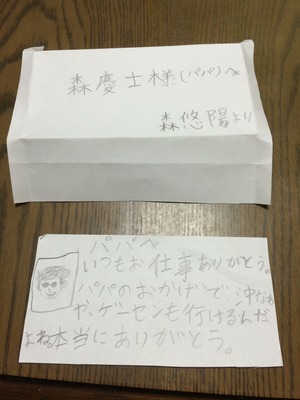 森慶士様(パパ)へ
森悠陽より
パパへ
いつもお仕事ありがとう。
パパのおかげで、沖なわ
や、ゲーセンも行けるんだ
よね本当にありがとう。